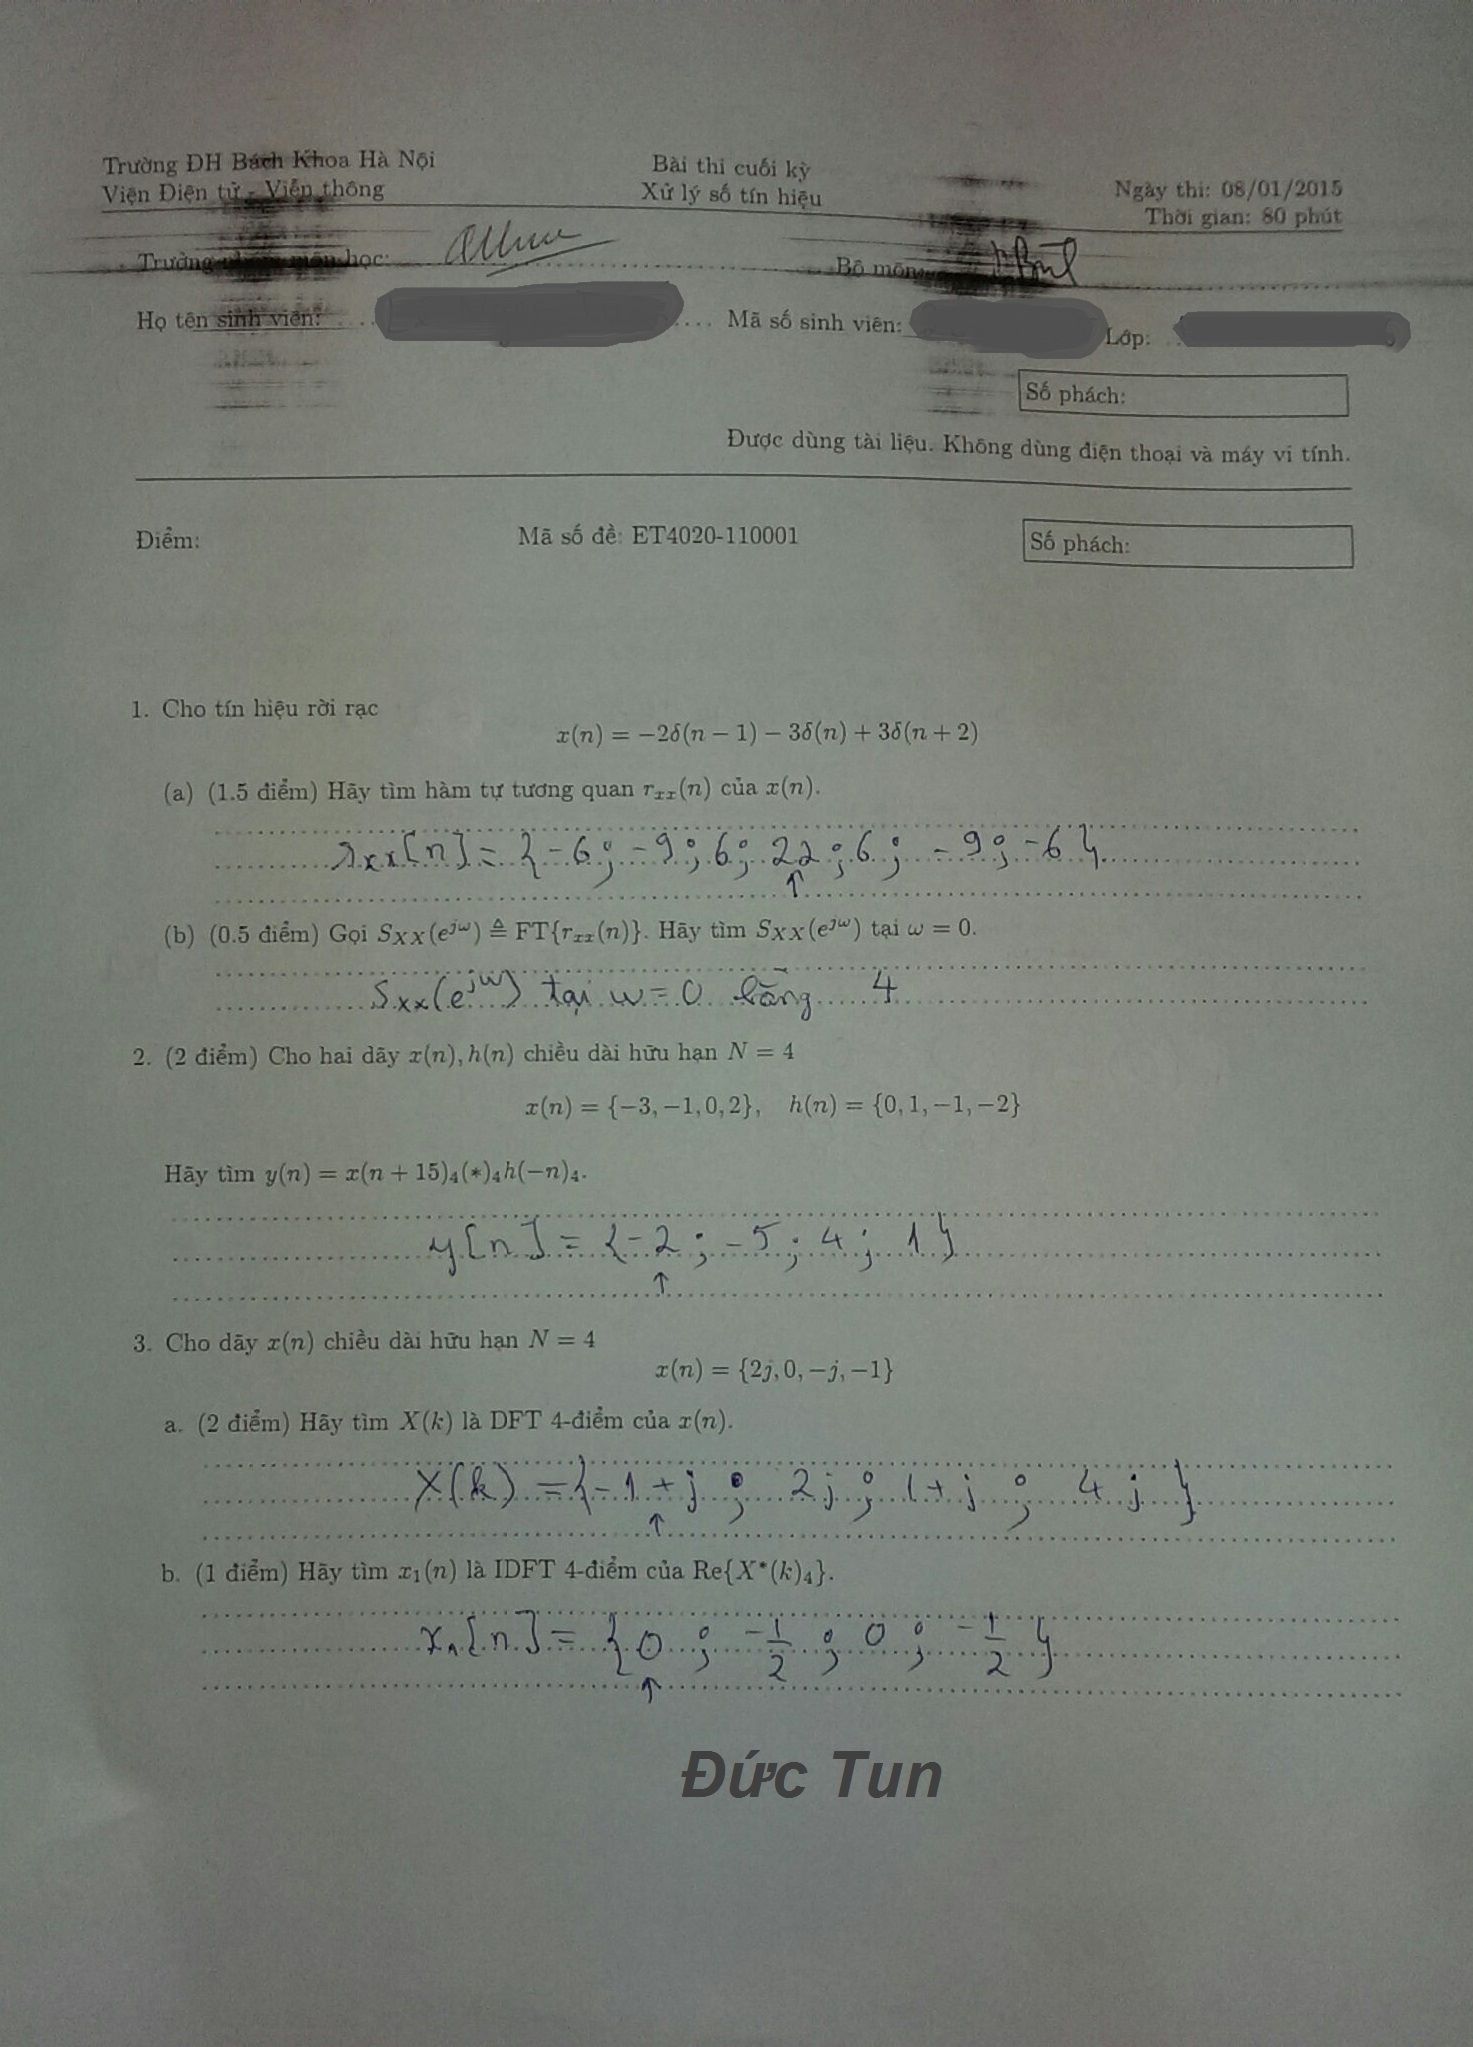 Trường ĐH Bách Khoa Hà Nội
Viện Điện tử - Viễn thông
Bài thi cuối kỳ
Xử lý số tín hiệu
Ngày thi: 08/01/2015
Thời gian: 80 phút
Trưởng môn học:
Bộ môn
Họ tên sinh viên: Mã số sinh viên: Lớp:
Số phách:
Được dùng tài liệu. Không dùng điện thoại và máy vi tính.
Điểm: Mã số đề: ET4020-110001 Số phách:
1. Cho tín hiệu rời rạc
x(n) = −2δ(n − 1) − 3δ(n) + 3δ(n + 2)
(a) (1.5 điểm) Hãy tìm hàm tự tương quan rxx(n) của x(n).
rxx[n] = {-6; -9; 6; 22; 6; -9; -6}
↑
(b) (0.5 điểm) Gọi SXX(e^jω) ≜ FT{rxx(n)}. Hãy tìm SXX(e^jω) tại ω = 0.
Sxx(e^jω) tại ω = 0 bằng 4
2. (2 điểm) Cho hai dãy x(n), h(n) chiều dài hữu hạn N = 4
x(n) = {−3, −1, 0, 2}, h(n) = {0, 1, −1, −2}
Hãy tìm y(n) = x(n + 15)4(*)4h(−n)4.
y[n] = {-2; -5; 4; 1}
↑
3. Cho dãy x(n) chiều dài hữu hạn N = 4
x(n) = {2j, 0, −j, −1}
a. (2 điểm) Hãy tìm X(k) là DFT 4-điểm của x(n).
X(k) = {-1+j; 2j; 1+j; 4j}
↑
b. (1 điểm) Hãy tìm x1(n) là IDFT 4-điểm của Re{X*(k)4}.
x1[n] = {0; -1/2; 0; -1/2}
↑
Đức Tun